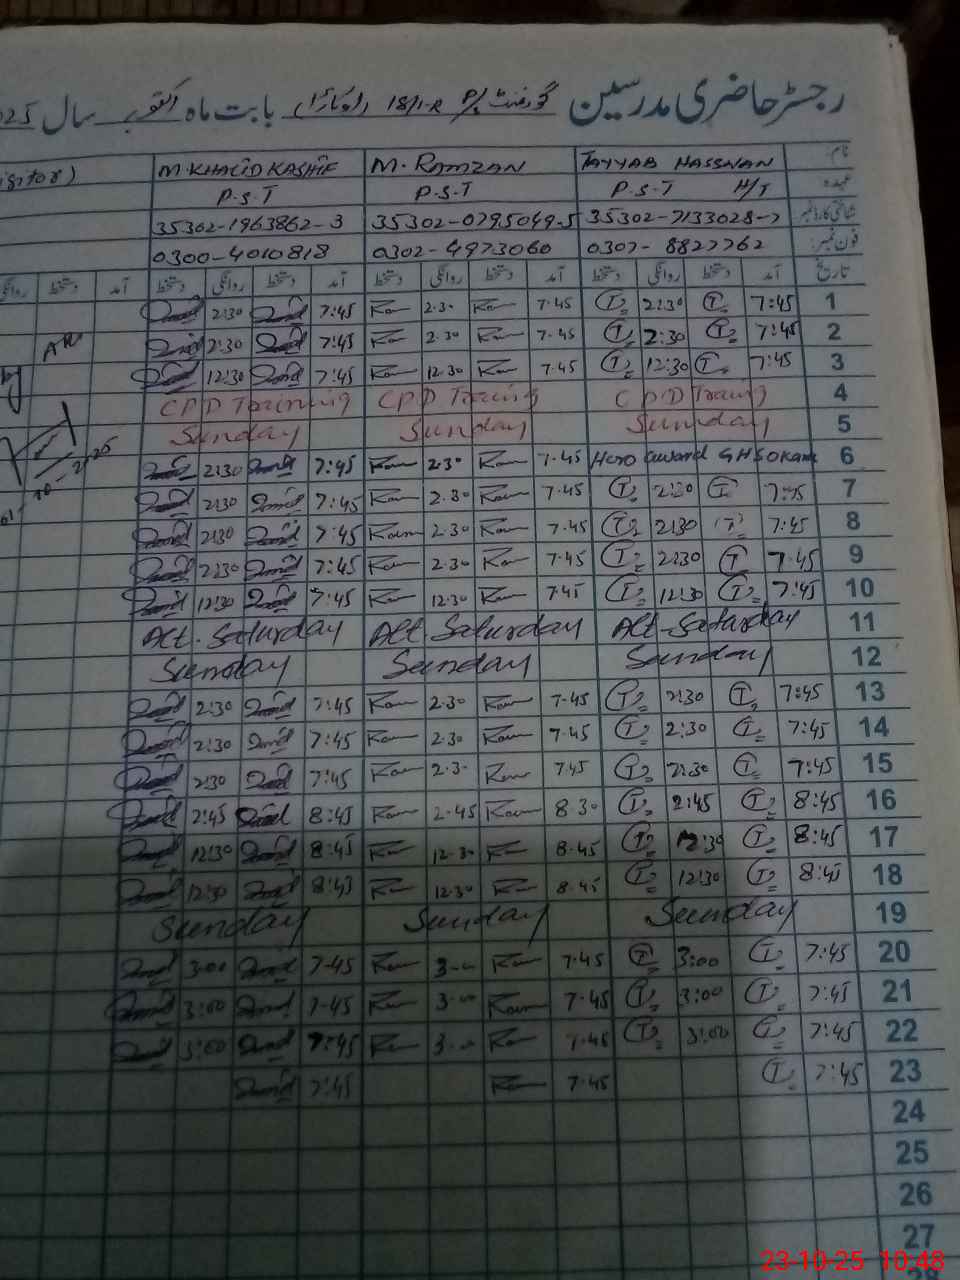 رجسٹر حاضری مدرسین گورنمنٹ P/ 18/1-R (اوکاڑا) بابت ماہ اکتوبر سال 025
نام M. KHALID KASHIF M. RAMZAN TAYYAB HASSNAN
عہدہ P.S.T P.S.T P.S.T H/T
شناختی کارڈ نمبر 35302-1963862-3 35302-0795049-5 35302-7133028-7
فون نمبر: 0300-4010818 0302-4973060 0307-8827762
تاریخ آمد دستخط روانگی دستخط آمد دستخط روانگی دستخط آمد دستخط روانگی دستخط آمد دستخط روانگی
2:30 7:45 Ram 2.30 Ram 7.45 T 2:30 T 7:45 1
2:30 7:45 Ram 2.30 Ram 7.45 T 2:30 T 7:45 2
12:30 7:45 Ram 12.30 Ram 7.45 T 12:30 T 7:45 3
CPD Training CPD Traing CPD Traing 4
Sunday Sunday Sunday 5
2:30 7:45 Ram 2.30 Ram 7.45 Hero award GHS Okara 6
2:30 7:45 Ram 2.30 Ram 7.45 T 2:30 T 7:45 7
2:30 7:45 Ram 2.30 Ram 7.45 T 2:30 T 7:45 8
2:30 7:45 Ram 2.30 Ram 7.45 T 2:30 T 7:45 9
12:30 7:45 Ram 12.30 Ram 7.45 T 12:30 T 7:45 10
Alt. Saturday Alt. Saturday Alt. Saturday 11
Sunday Sunday Sunday 12
2:30 7:45 Ram 2.30 Ram 7.45 T 2:30 T 7:45 13
2:30 7:45 Ram 2.30 Ram 7.45 T 2:30 T 7:45 14
2:30 7:45 Ram 2.30 Ram 7.45 T 2:30 T 7:45 15
2:45 8:45 Ram 2.45 Ram 8.30 T 2:45 T 8:45 16
12:30 8:45 Ram 12.30 Ram 8.45 T 12:30 T 8:45 17
12:30 8:45 Ram 12.30 Ram 8.45 T 12:30 T 8:45 18
Sunday Sunday Sunday 19
3:00 7-45 Ram 3.00 Ram 7.45 T 3:00 T 7:45 20
3:00 7-45 Ram 3.00 Ram 7.45 T 3:00 T 7:45 21
3:00 7:45 Ram 3.00 Ram 7.45 T 3:00 T 7:45 22
7:45 Ram 7.45 T 7:45 23
24
25
26
27
23-10-25 10:48